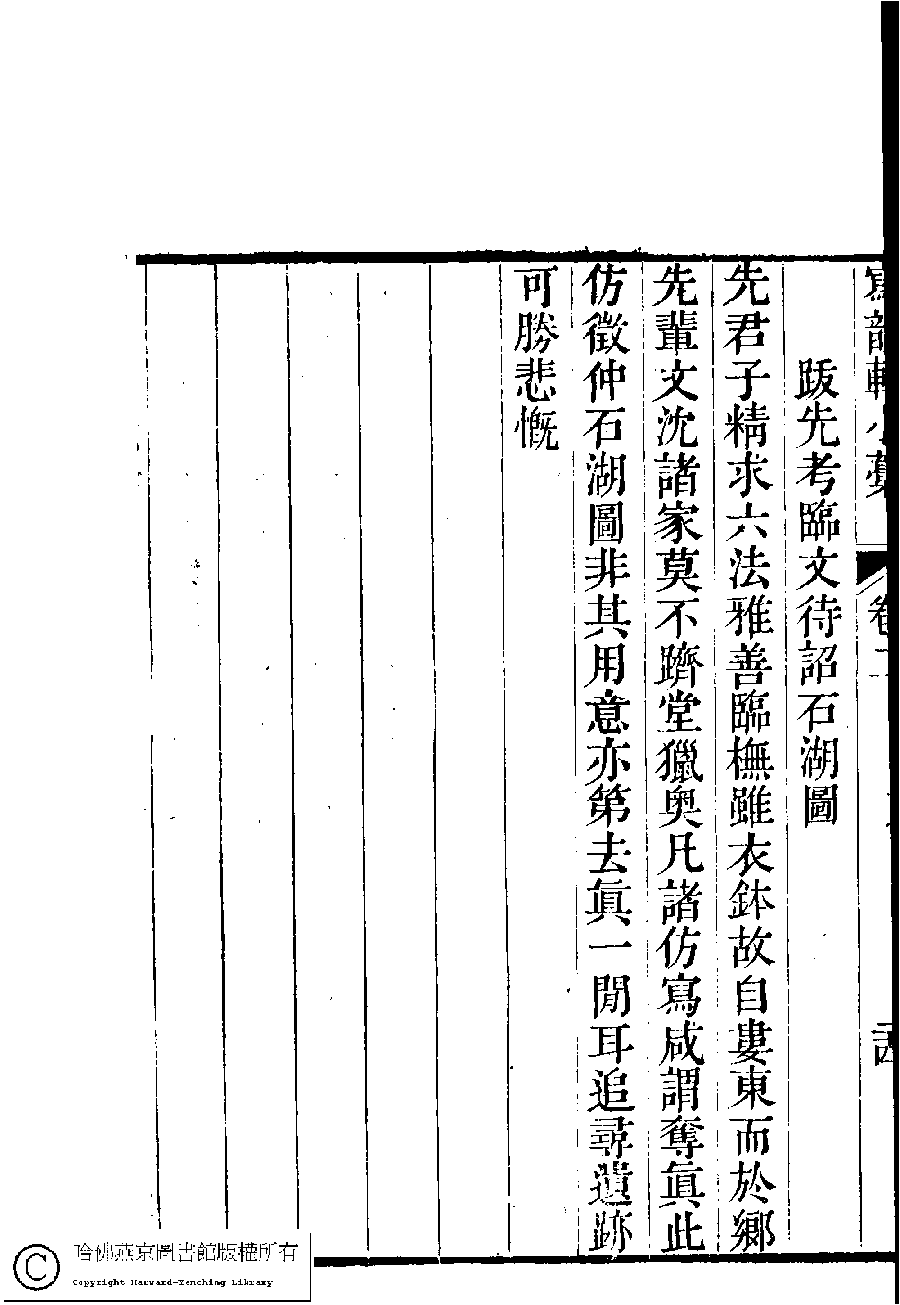 跋先考臨文待詔石湖圖
先君子精求六法雅善臨橅雖衣鉢故自婁東而於鄉
先輩文沈諸家莫不躋堂獵奥凡諸仿寫咸謂奪眞此
仿徵仲石湖圖非其用意亦第去眞一閒耳追尋遺跡
可勝悲慨
哈佛燕京圖書館版權所有
Copyright Harvard-Yenching Library